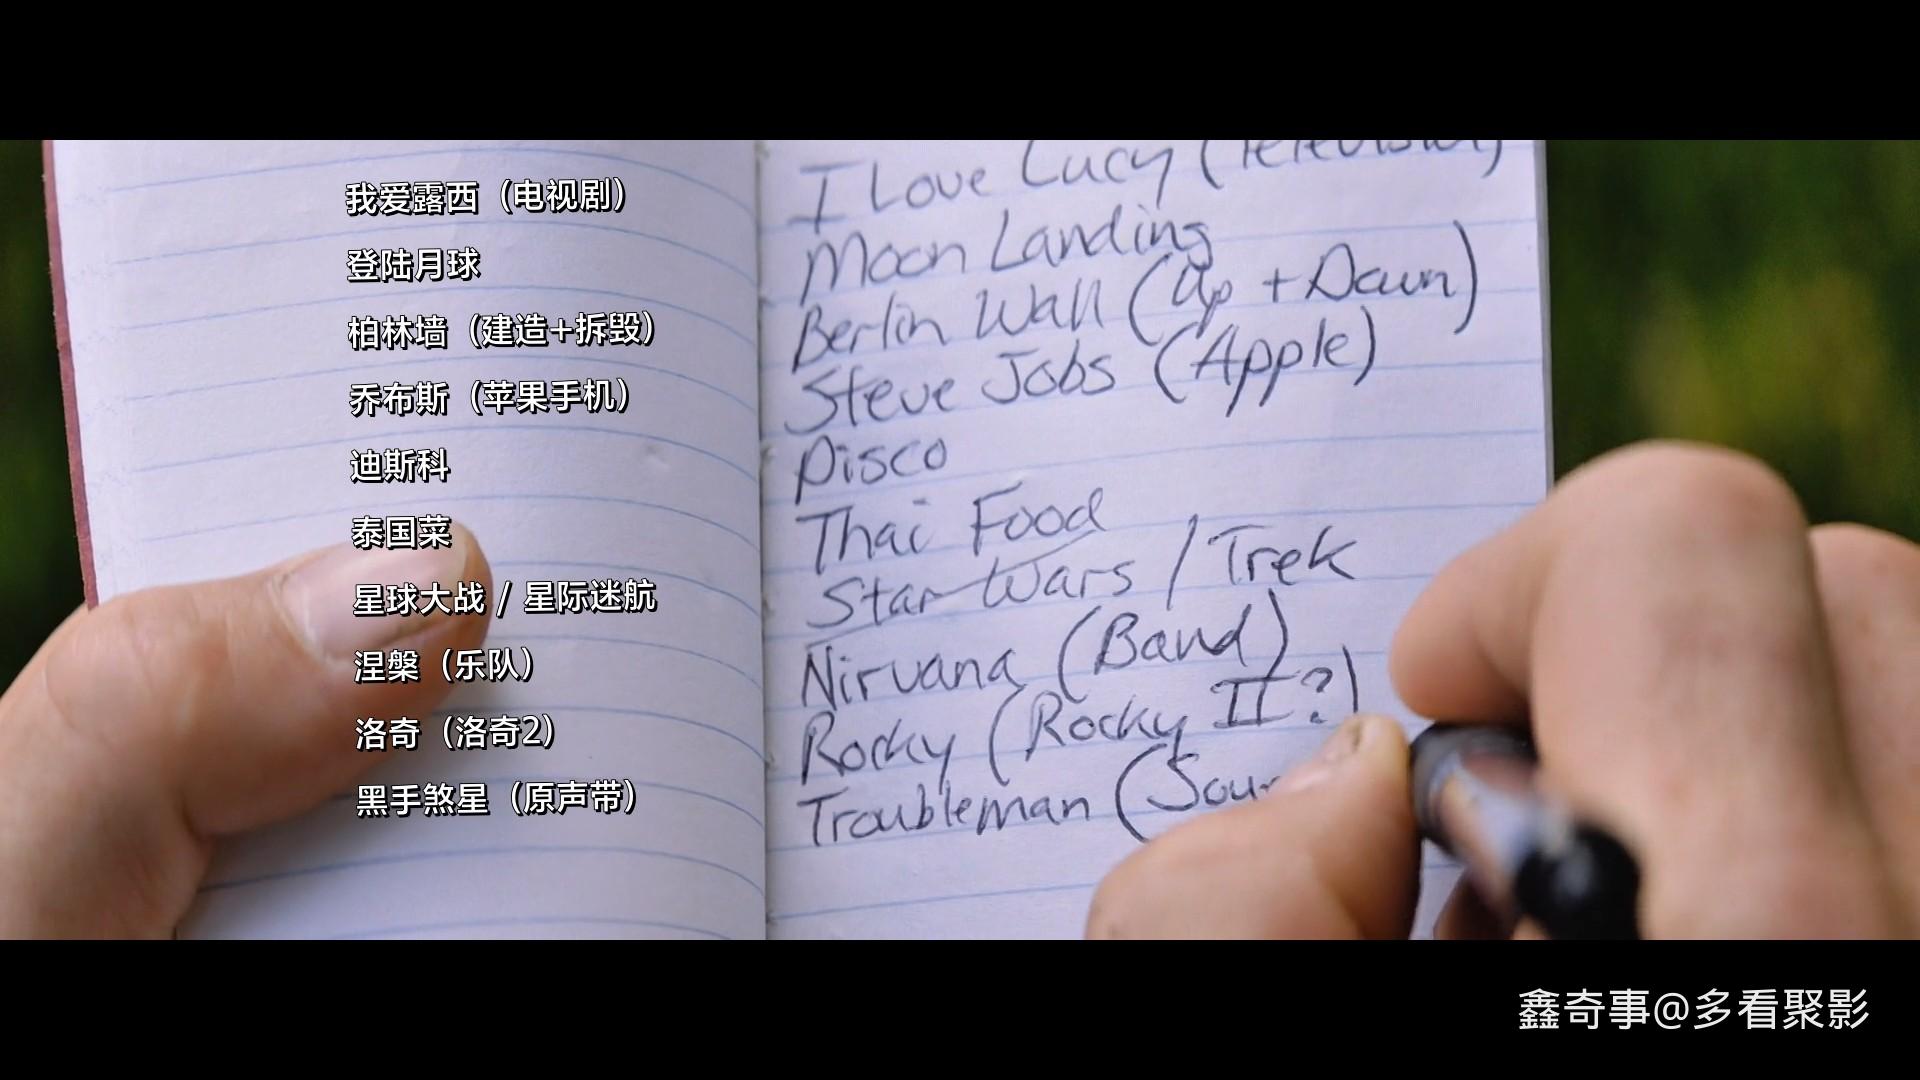 我爱露西（电视剧）
登陆月球
柏林墙（建造+拆毁）
乔布斯（苹果手机）
迪斯科
泰国菜
星球大战 / 星际迷航
涅槃（乐队）
洛奇（洛奇2）
黑手煞星（原声带）
I Love Lucy (Television)
Moon Landing
Berlin Wall (Up + Down)
Steve Jobs (Apple)
Disco
Thai Food
Star Wars / Trek
Nirvana (Band)
Rocky (Rocky II?)
Troubleman (Sou
鑫奇事@多看聚影